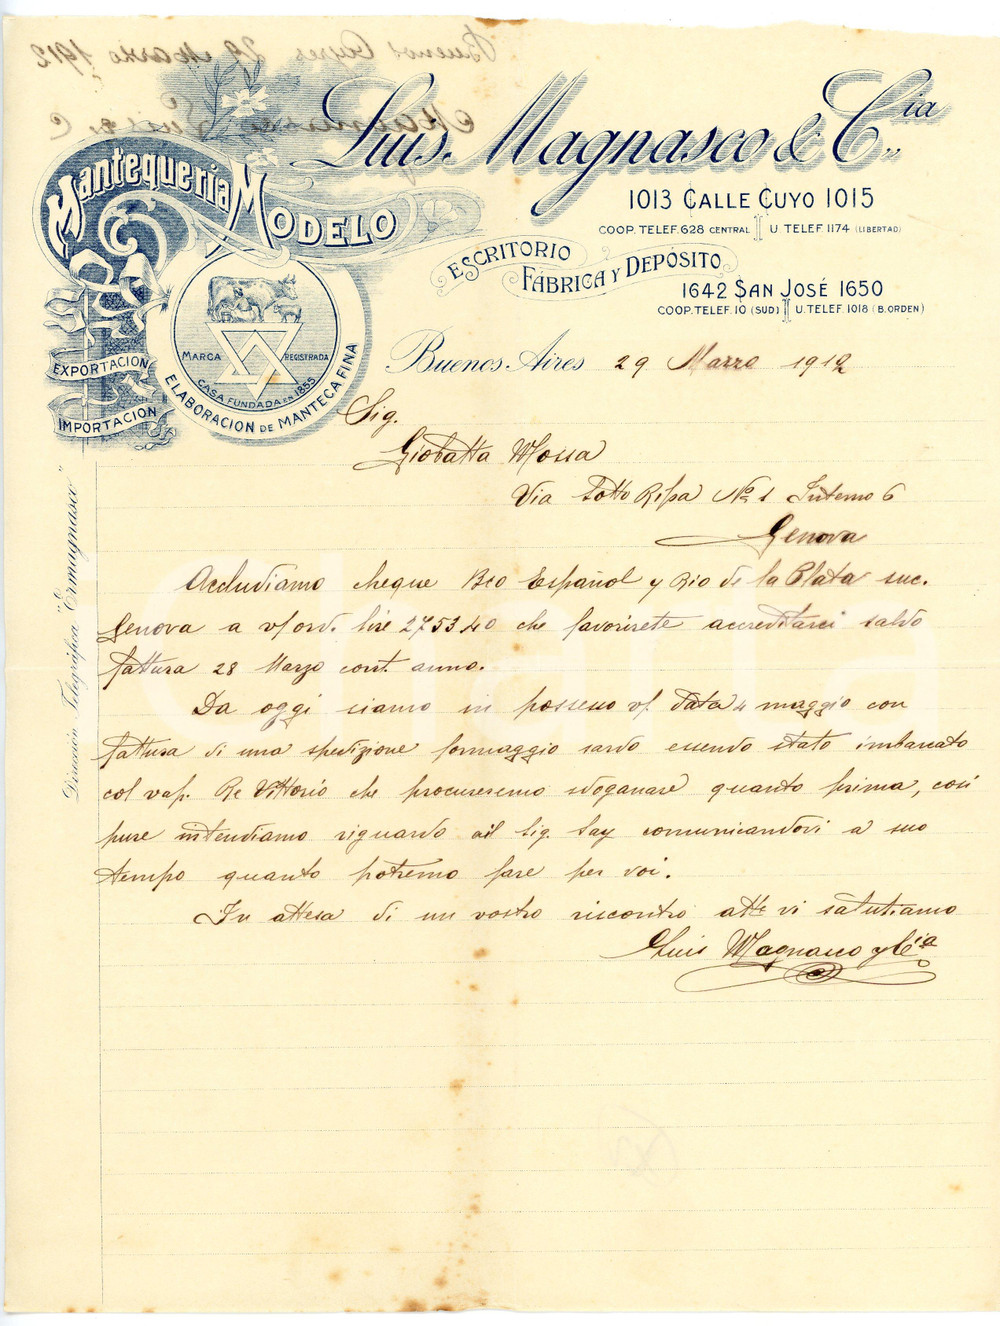 Luis Magnasco & Cia
Mantequeria Modelo
1013 Calle Cuyo 1015
Coop. Telef. 628 Central U. Telef. 1174 (Libertad)
Escritorio
Fábrica y Depósito
1642 San José 1650
Coop. Telef. 10 (Sud) U. Telef. 1018 (B. Orden)
Marca Registrada
Casa fundada en 1855
Elaboracion de Manteca Fina
Exportacion
Importacion
Dirección Telegráfica "Ermagnasco"
Buenos Aires 29 Marzo 1912
Sig.
Giobatta Mossa
Via Sotto Ripa No. 1 Interno 6
Genova
Accludiamo cheque Bco Español y Rio de la Plata suc.
Genova a v/ ord. lire 2753,40 che favorirete accreditarci saldo
fattura 28 Marzo cort. anno.
Da oggi siamo in possesso v/. data 4 maggio con
fattura di una spedizione formaggio sardo essendo stato imbarcato
col vap. Re Vittorio che procureremo sdoganare quanto prima, così
pure intendiamo riguardo al Sig. Say comunicandovi a suo
tempo quanto potremo fare per voi.
In attesa di un vostro riscontro atte vi salutiamo
Luis Magnasco y Cia
Buenos Ayres 29 Marzo 1912
Magnasco Luis & C